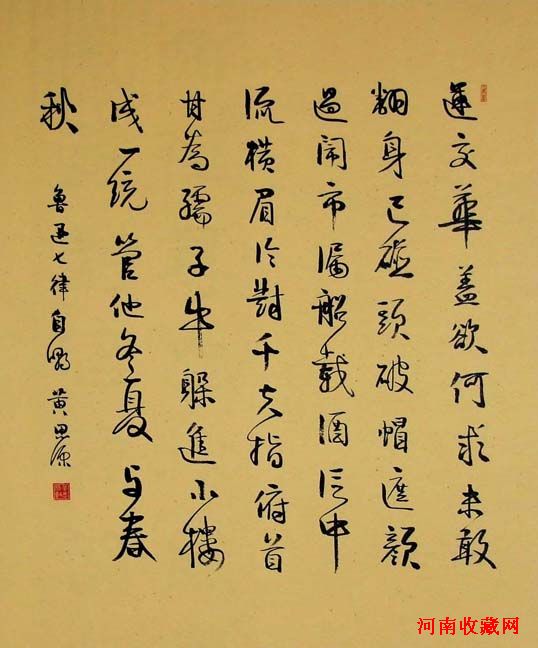 運交華蓋欲何求未敢
翻身已碰頭破帽遮顏
過鬧市漏船載酒泛中
流橫眉冷對千夫指俯首
甘為孺子牛躲進小樓
成一統管他冬夏与春
秋
魯迅七律自嘲 黃思源
河南收藏网